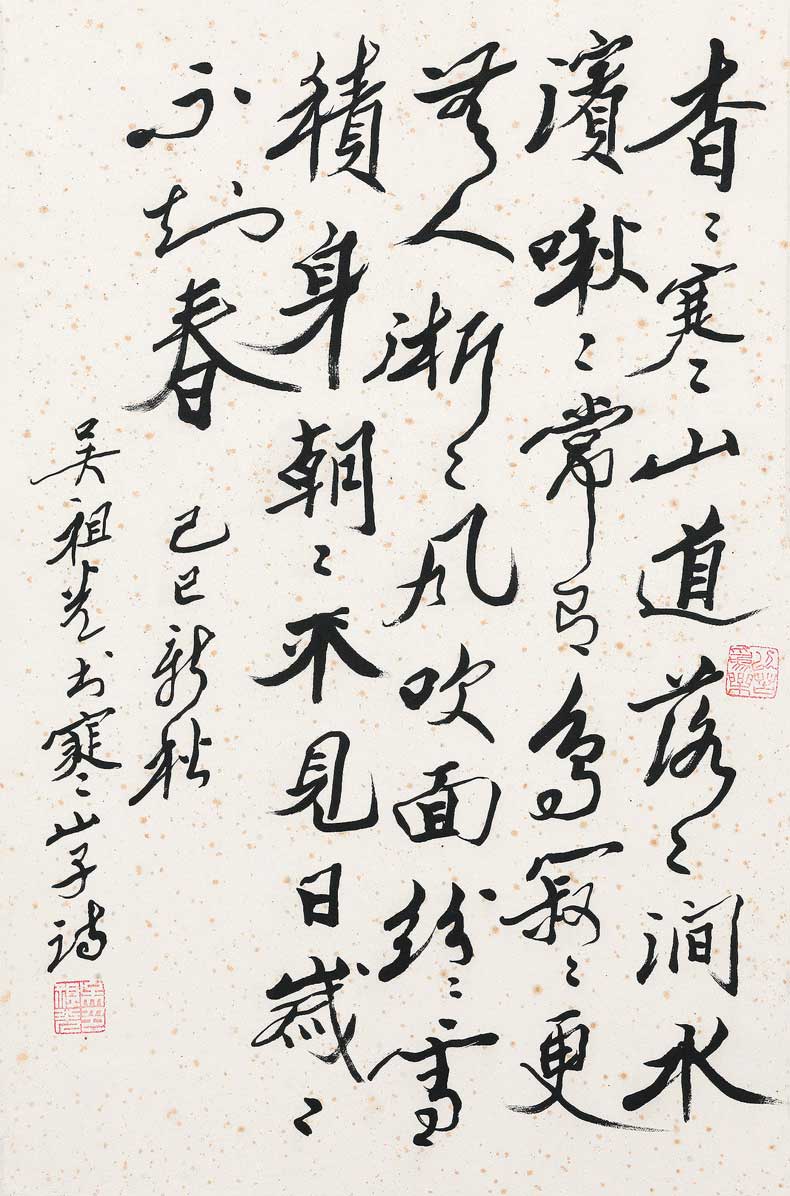 杳〻寒山道落〻澗水
濱啾〻常有鳥寂〻更
無人淅〻風吹面紛〻雪
積身朝〻不見日歲〻
不知春
己巳新秋
吳祖光书寒山子詩